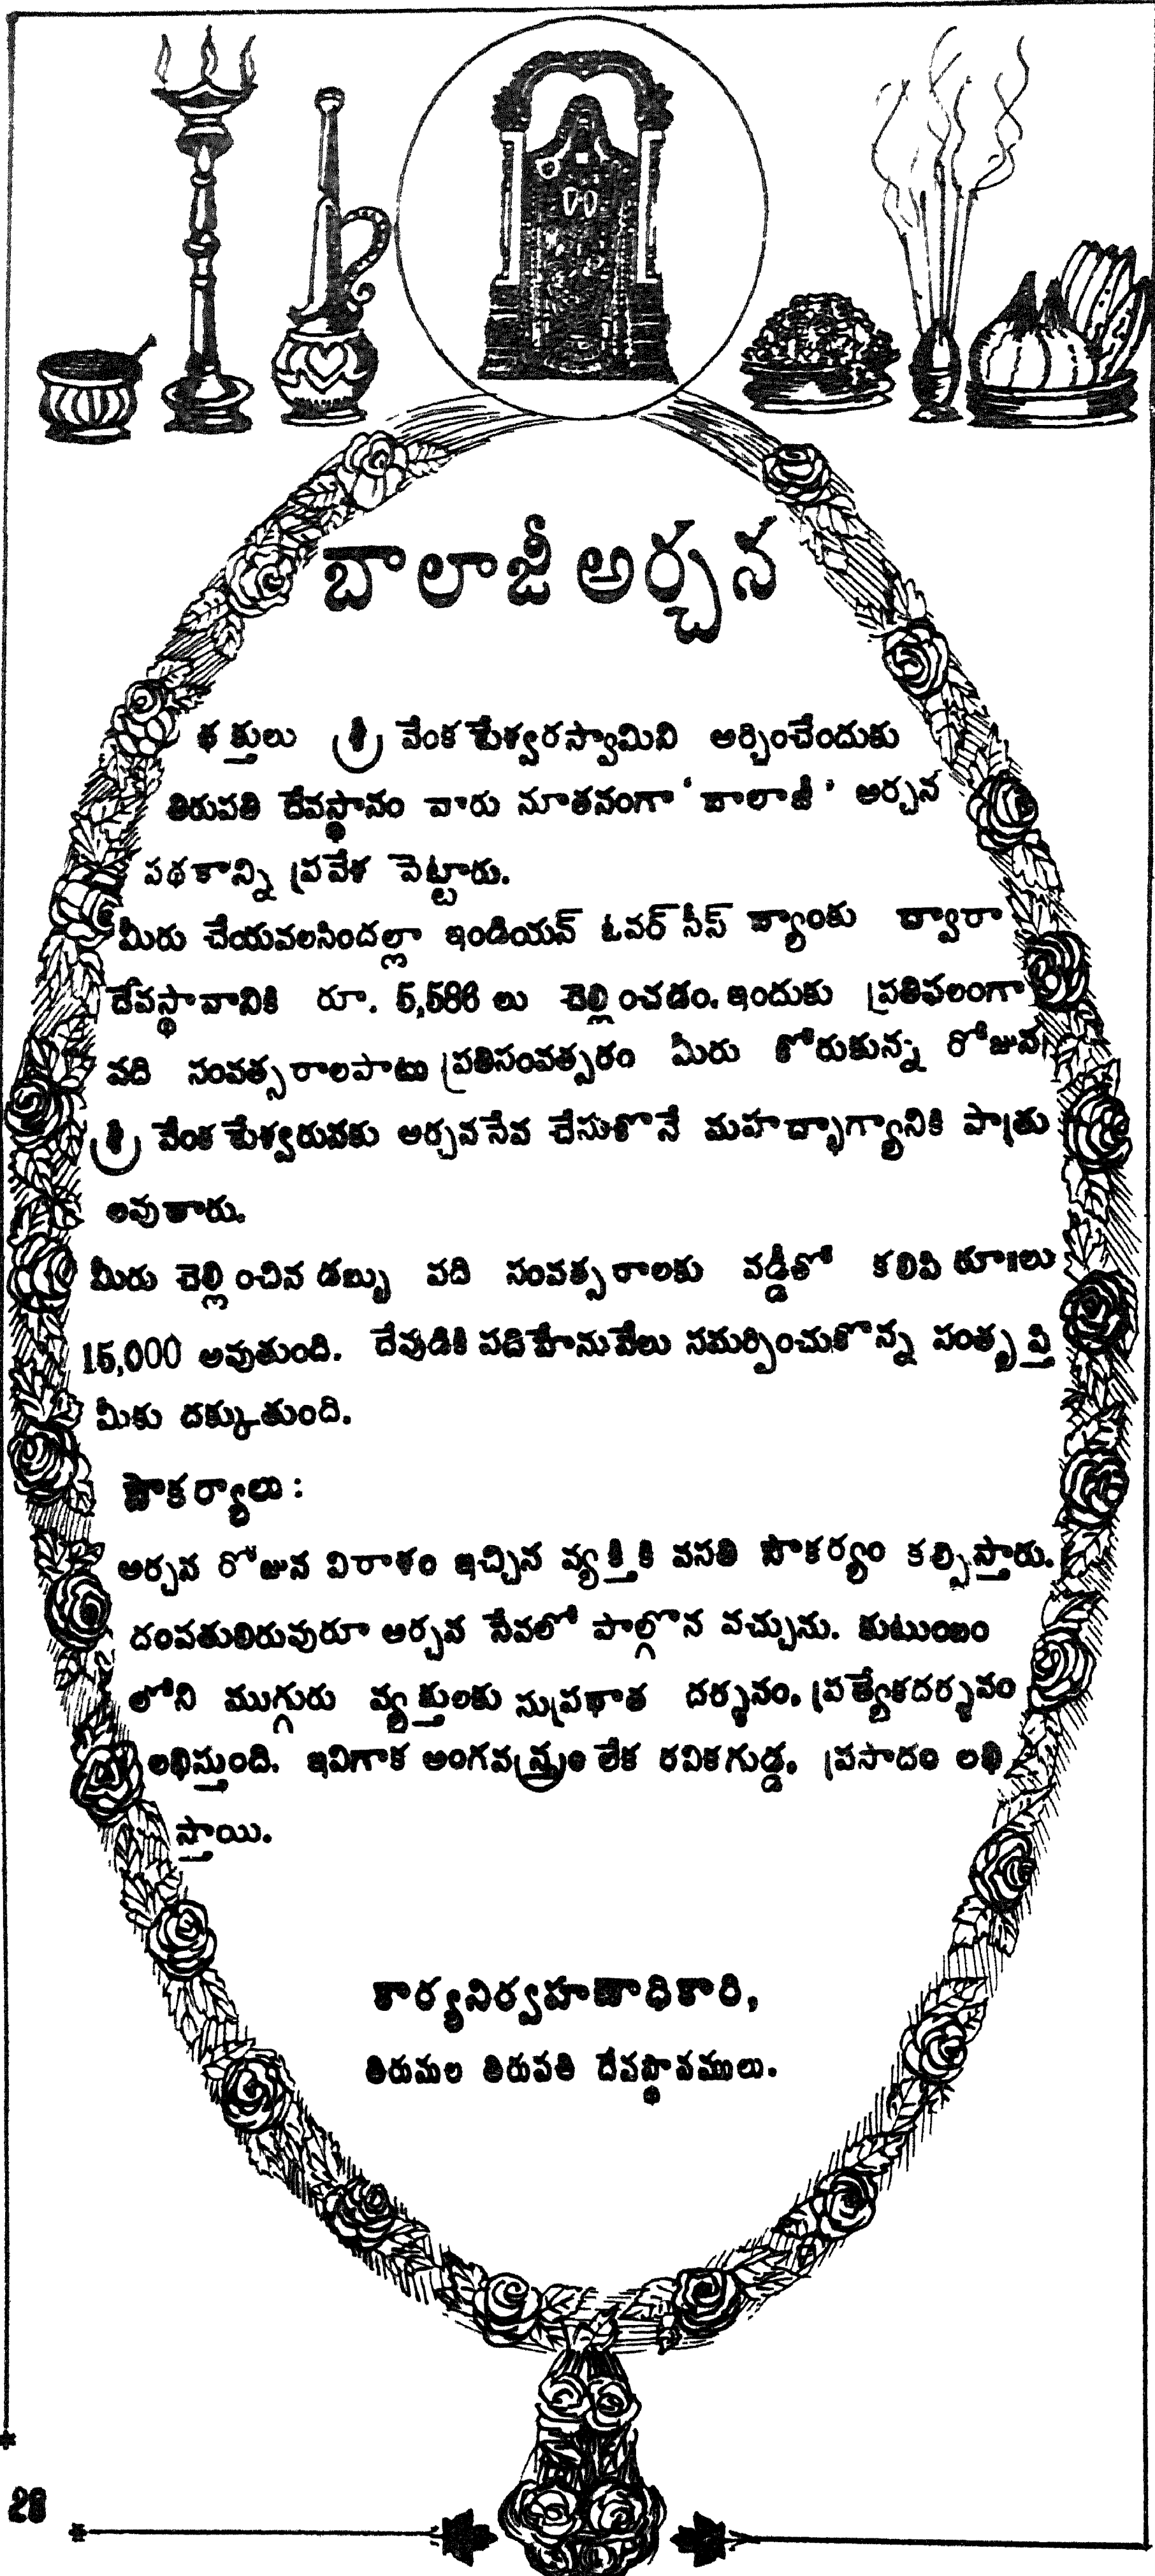 బాలాజీ అర్చన
భక్తులు శ్రీ వేంకటేశ్వరస్వామిని అర్చించేందుకు
తిరుపతి దేవస్థానం వారు నూతనంగా ‘బాలాజీ’ అర్చన
పథకాన్ని ప్రవేశ పెట్టారు.
మీరు చేయవలసిందల్లా ఇండియన్ ఓవర్ సీస్ బ్యాంకు ద్వారా
దేవస్థానానికి రూ. 5,586 లు చెల్లించడం. ఇందుకు ప్రతిఫలంగా
పది సంవత్సరాలపాటు ప్రతిసంవత్సరం మీరు కోరుకున్న రోజున
శ్రీ వేంకటేశ్వరునకు అర్చనసేవ చేసుకొనే మహద్భాగ్యానికి పాత్రు
లవుతారు.
మీరు చెల్లించిన డబ్బు పది సంవత్సరాలకు వడ్డీతో కలిపి రూ॥లు
15,000 అవుతుంది. దేవుడికి పదిహేనువేలు సమర్పించుకొన్న సంతృప్తి
మీకు దక్కుతుంది.
సౌకర్యాలు :
అర్చన రోజున విరాళం ఇచ్చిన వ్యక్తికి వసతి సౌకర్యం కల్పిస్తారు.
దంపతులిరువురూ అర్చన సేవలో పాల్గొన వచ్చును. కుటుంబం
లోని ముగ్గురు వ్యక్తులకు సుప్రభాత దర్శనం, ప్రత్యేకదర్శనం
లభిస్తుంది. ఇవిగాక అంగవస్త్రం లేక రవికగుడ్డ, ప్రసాదం లభి
స్తాయి.
కార్యనిర్వహణాధికారి,
తిరుమల తిరుపతి దేవస్థానములు.
28